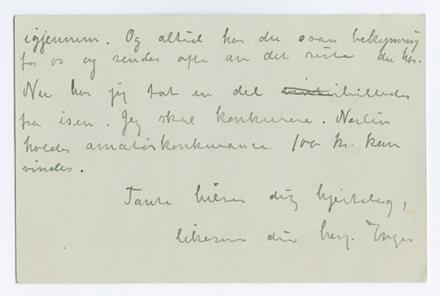 igjennem. Og altid har du saan bekymring
for os og sender ofte av det siste du har.
Nu har jeg tat en del billeder
fra isen. Jeg skal konkurere.
holder amatørkonkurance. 100 kr. kan
vindes.
Tante hilser dig hjertelig,
likesom din Inger